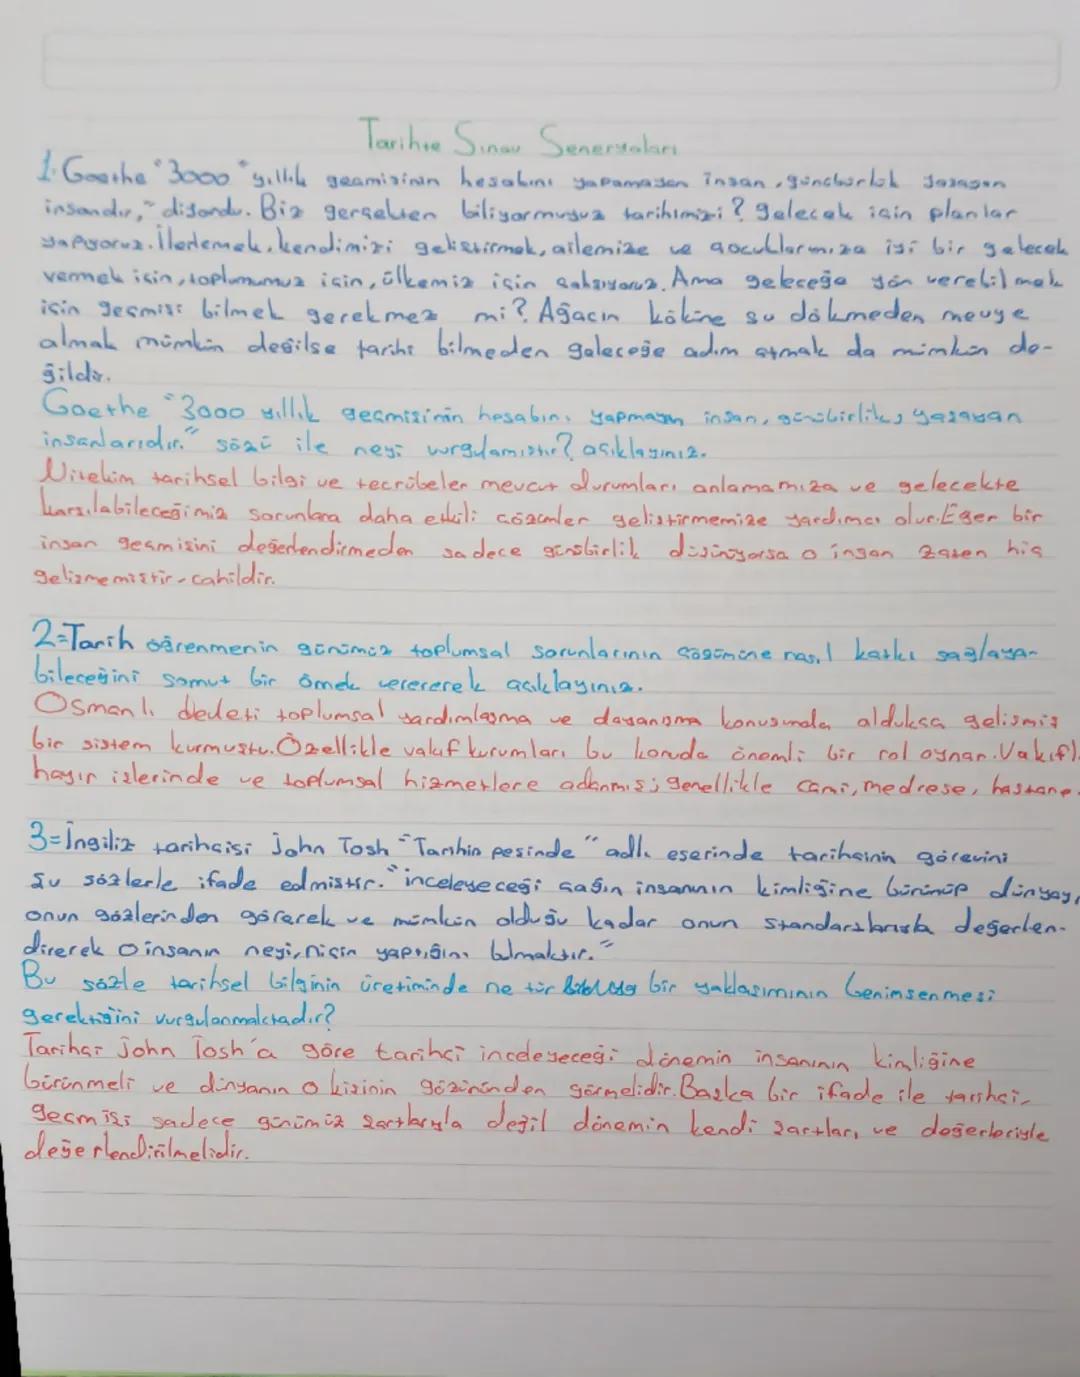 Tarihte Sınav Seneryaları
1. Goethe "3000" yıllık geçmişinin hesabını yapamayan insan, günübirlik yaşayan
insandır," diyordu. Biz gerçekten biliyormuyuz tarihimizi? gelecek için planlar
yapıyoruz. İlerlemek, kendimizi geliştirmek, ailemize ve çocuklarımıza iyi bir gelecek
vermek için, toplumumuz için, ülkemiz için çalışıyoruz. Ama geleceğe yön verebilmek
için geçmişi bilmek gerekmez mi? Ağacın köküne su dökmeden meyve
almak mümkün değilse tarihi bilmeden geleceğe adım atmak da mümkün de-
ğildir.
Goethe "3000 yıllık geçmişinin hesabını yapmayan insan, günübirlikç yaşayan
insanlarıdır." sözü ile neyi vurgulamıştır? açıklayınız.
Nitekim tarihsel bilgi ve tecrübeler mevcut durumları anlamamıza ve gelecekte
karşılabileceğimiz sorunlara daha etkili çözümler geliştirmemize yardımcı olur. Eğer bir
insan geçmişini değerlendirmeden sadece günübirlik düşünüyorsa o insan zaten hiç
gelişmemiştir - cahildir.
2= Tarih öğrenmenin günümüz toplumsal sorunlarının çözümüne nasıl katkı sağlaya-
bileceğini somut bir örnek vererek açıklayınız.
Osmanlı devleti toplumsal yardımlaşma ve dayanışma konusunda oldukça gelişmiş
bir sistem kurmuştu. Özellikle vakıf kurumları bu konuda önemli bir rol oynar. Vakıfl
hayır işlerinde ve toplumsal hizmetlere adanmış; genellikle cami, medrese, hastane
3= İngiliz tarihçisi John Tosh "Tarihin peşinde" adlı eserinde tarihçinin görevini
şu sözlerle ifade edmiştir. "inceleyeceği çağın insanının kimliğine bürünüp dünyayı
onun gözlerinden görerek ve mümkün olduğu kadar onun standartlarıyla değerlen-
direrek o insanın neyi, niçin yaptığını bulmaktır."
Bu sözle tarihsel bilginin üretiminde ne tür bir yaklaşımının benimsenmesi
gerektiğini vurgulanmaktadır?
Tarihçi John Tosh'a göre tarihçi inceleyeceği dönemin insanının kimliğine
bürünmeli ve dünyanın o kişinin gözününden görmelidir. Başka bir ifade ile tarihçi,
geçmişi sadece günümüz şartlarıyla değil dönemin kendi şartları ve değerleriyle
değerlendirilmelidir.